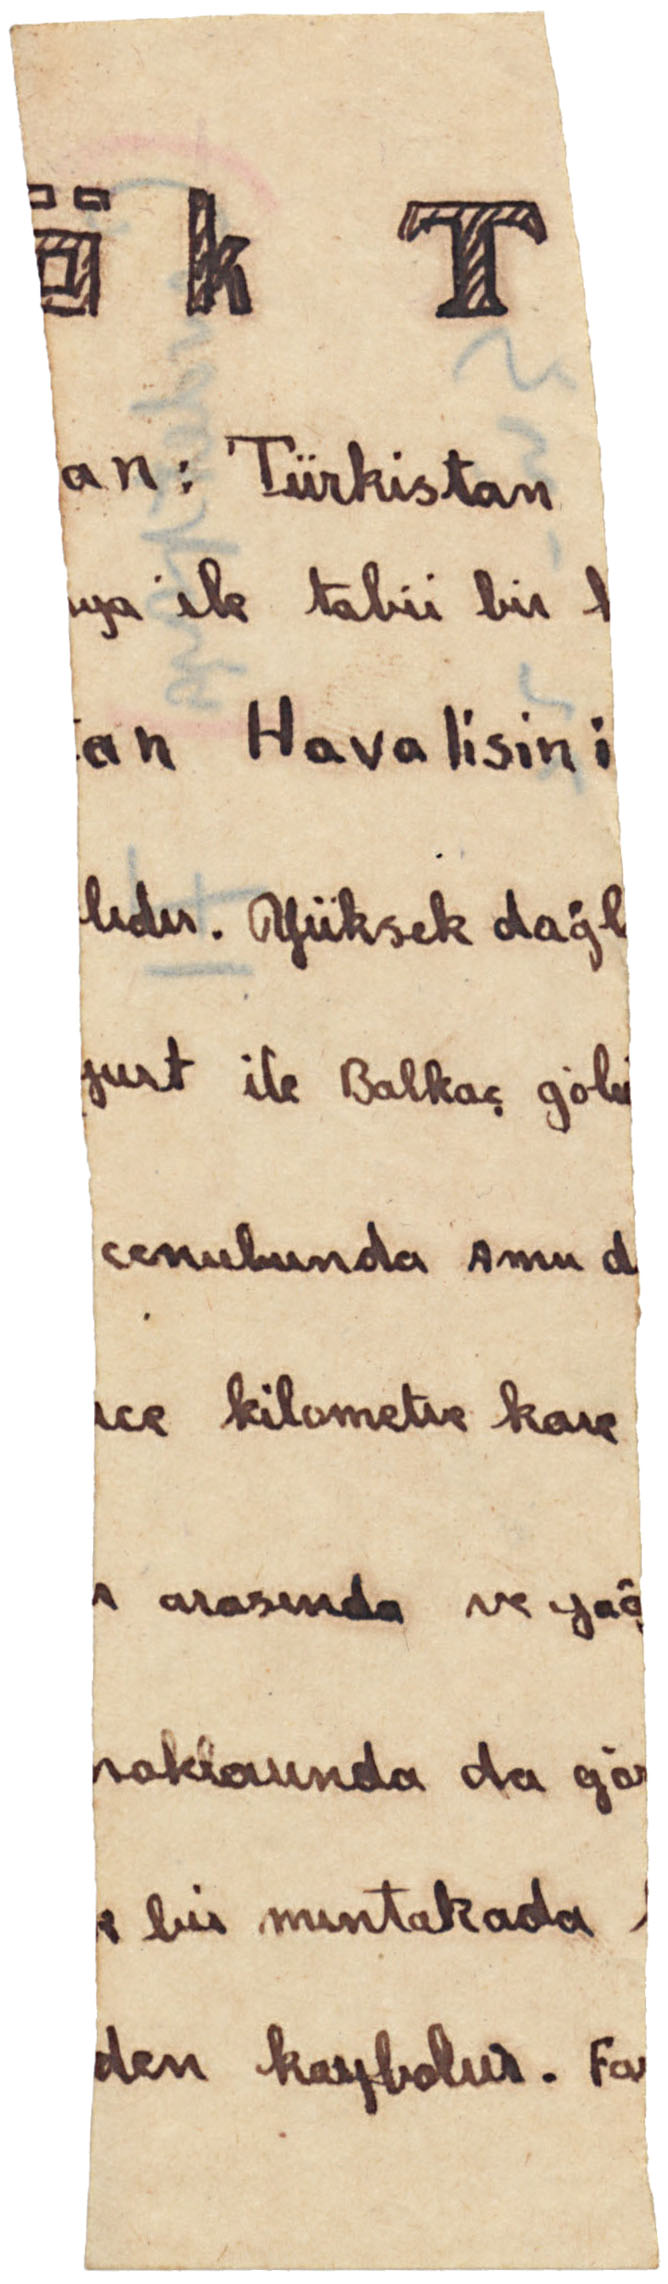 ök T
an: Türkistan
ya ile tabii bir
an Havalisini
lıdır. Yüksek dağl
yurt ile Balkaş gölü
cenubunda Amu d
ce kilometre kare
arasında ve yağ
raklarında da gör
bir mıntakada
den kaybolur. Fa